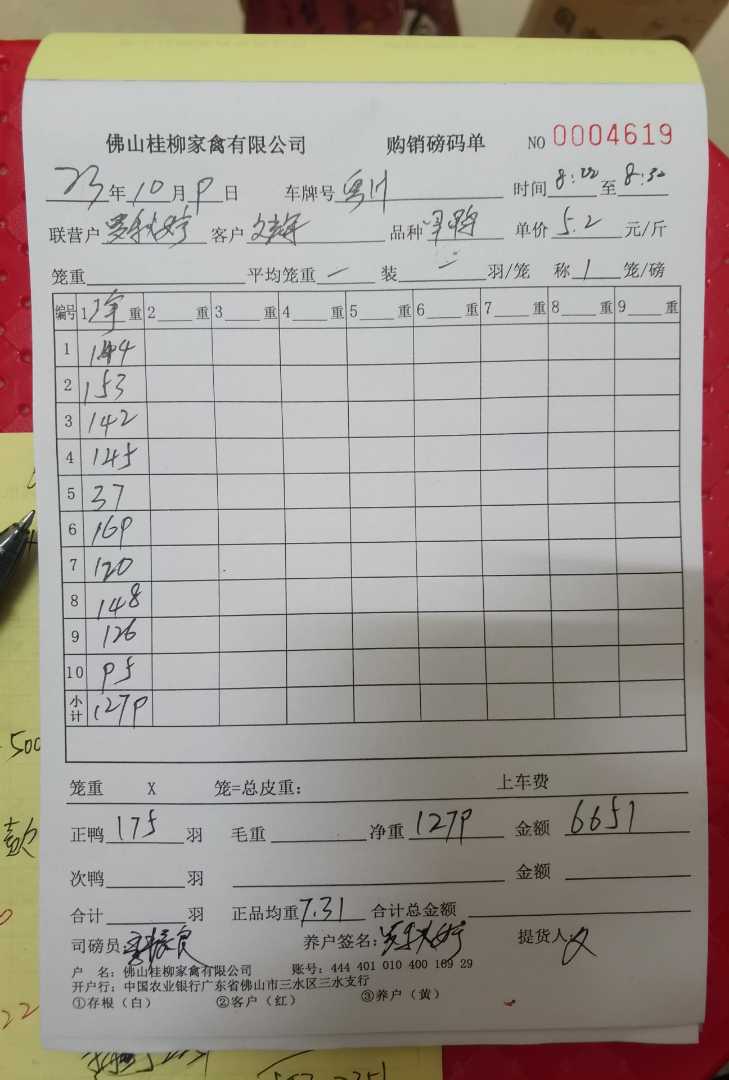 佛山桂柳家禽有限公司 购销磅码单 NO 0004619
23年10月9日 车牌号 粤 时间8:22至8:32
联营户 客户 品种 单价5.2元/斤
笼重 平均笼重一 装 羽/笼 称1笼/磅
编号 1净重 2 重 3 重 4 重 5 重 6 重 7 重 8 重 9 重
1 144
2 153
3 142
4 145
5 37
6 169
7 120
8 148
9 126
10 95
小计 1279
笼重 X 笼=总皮重: 上车费
正鸭175羽 毛重 净重1279 金额6651
次鸭 羽 金额
合计 羽 正品均重7.31 合计总金额
司磅员: 养户签名: 提货人:
户 名: 佛山桂柳家禽有限公司 账号: 444 401 010 400 169 29
开户行: 中国农业银行广东省佛山市三水区三水支行
①存根(白) ②客户(红) ③养户(黄)
500
款
22